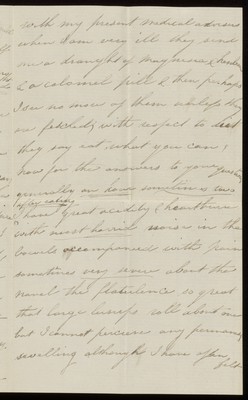 with my present medical advisers
when I am very ill they send
me a draught of magnesia & rhubarb
& a calomel pill & then perhaps
I see no more of them unless they
are fetched; with respect to diet
they say eat what you can;
now for the answers to your questions
generally an hour sometimes two
after eating
I have great acidity & heartburn
with most horrid noise in the
bowels accompanied with pain
sometimes very severe about the
navel the flatulence so great
that large lumps roll about in me
but I cannot perceive any permanent
swelling although I have often